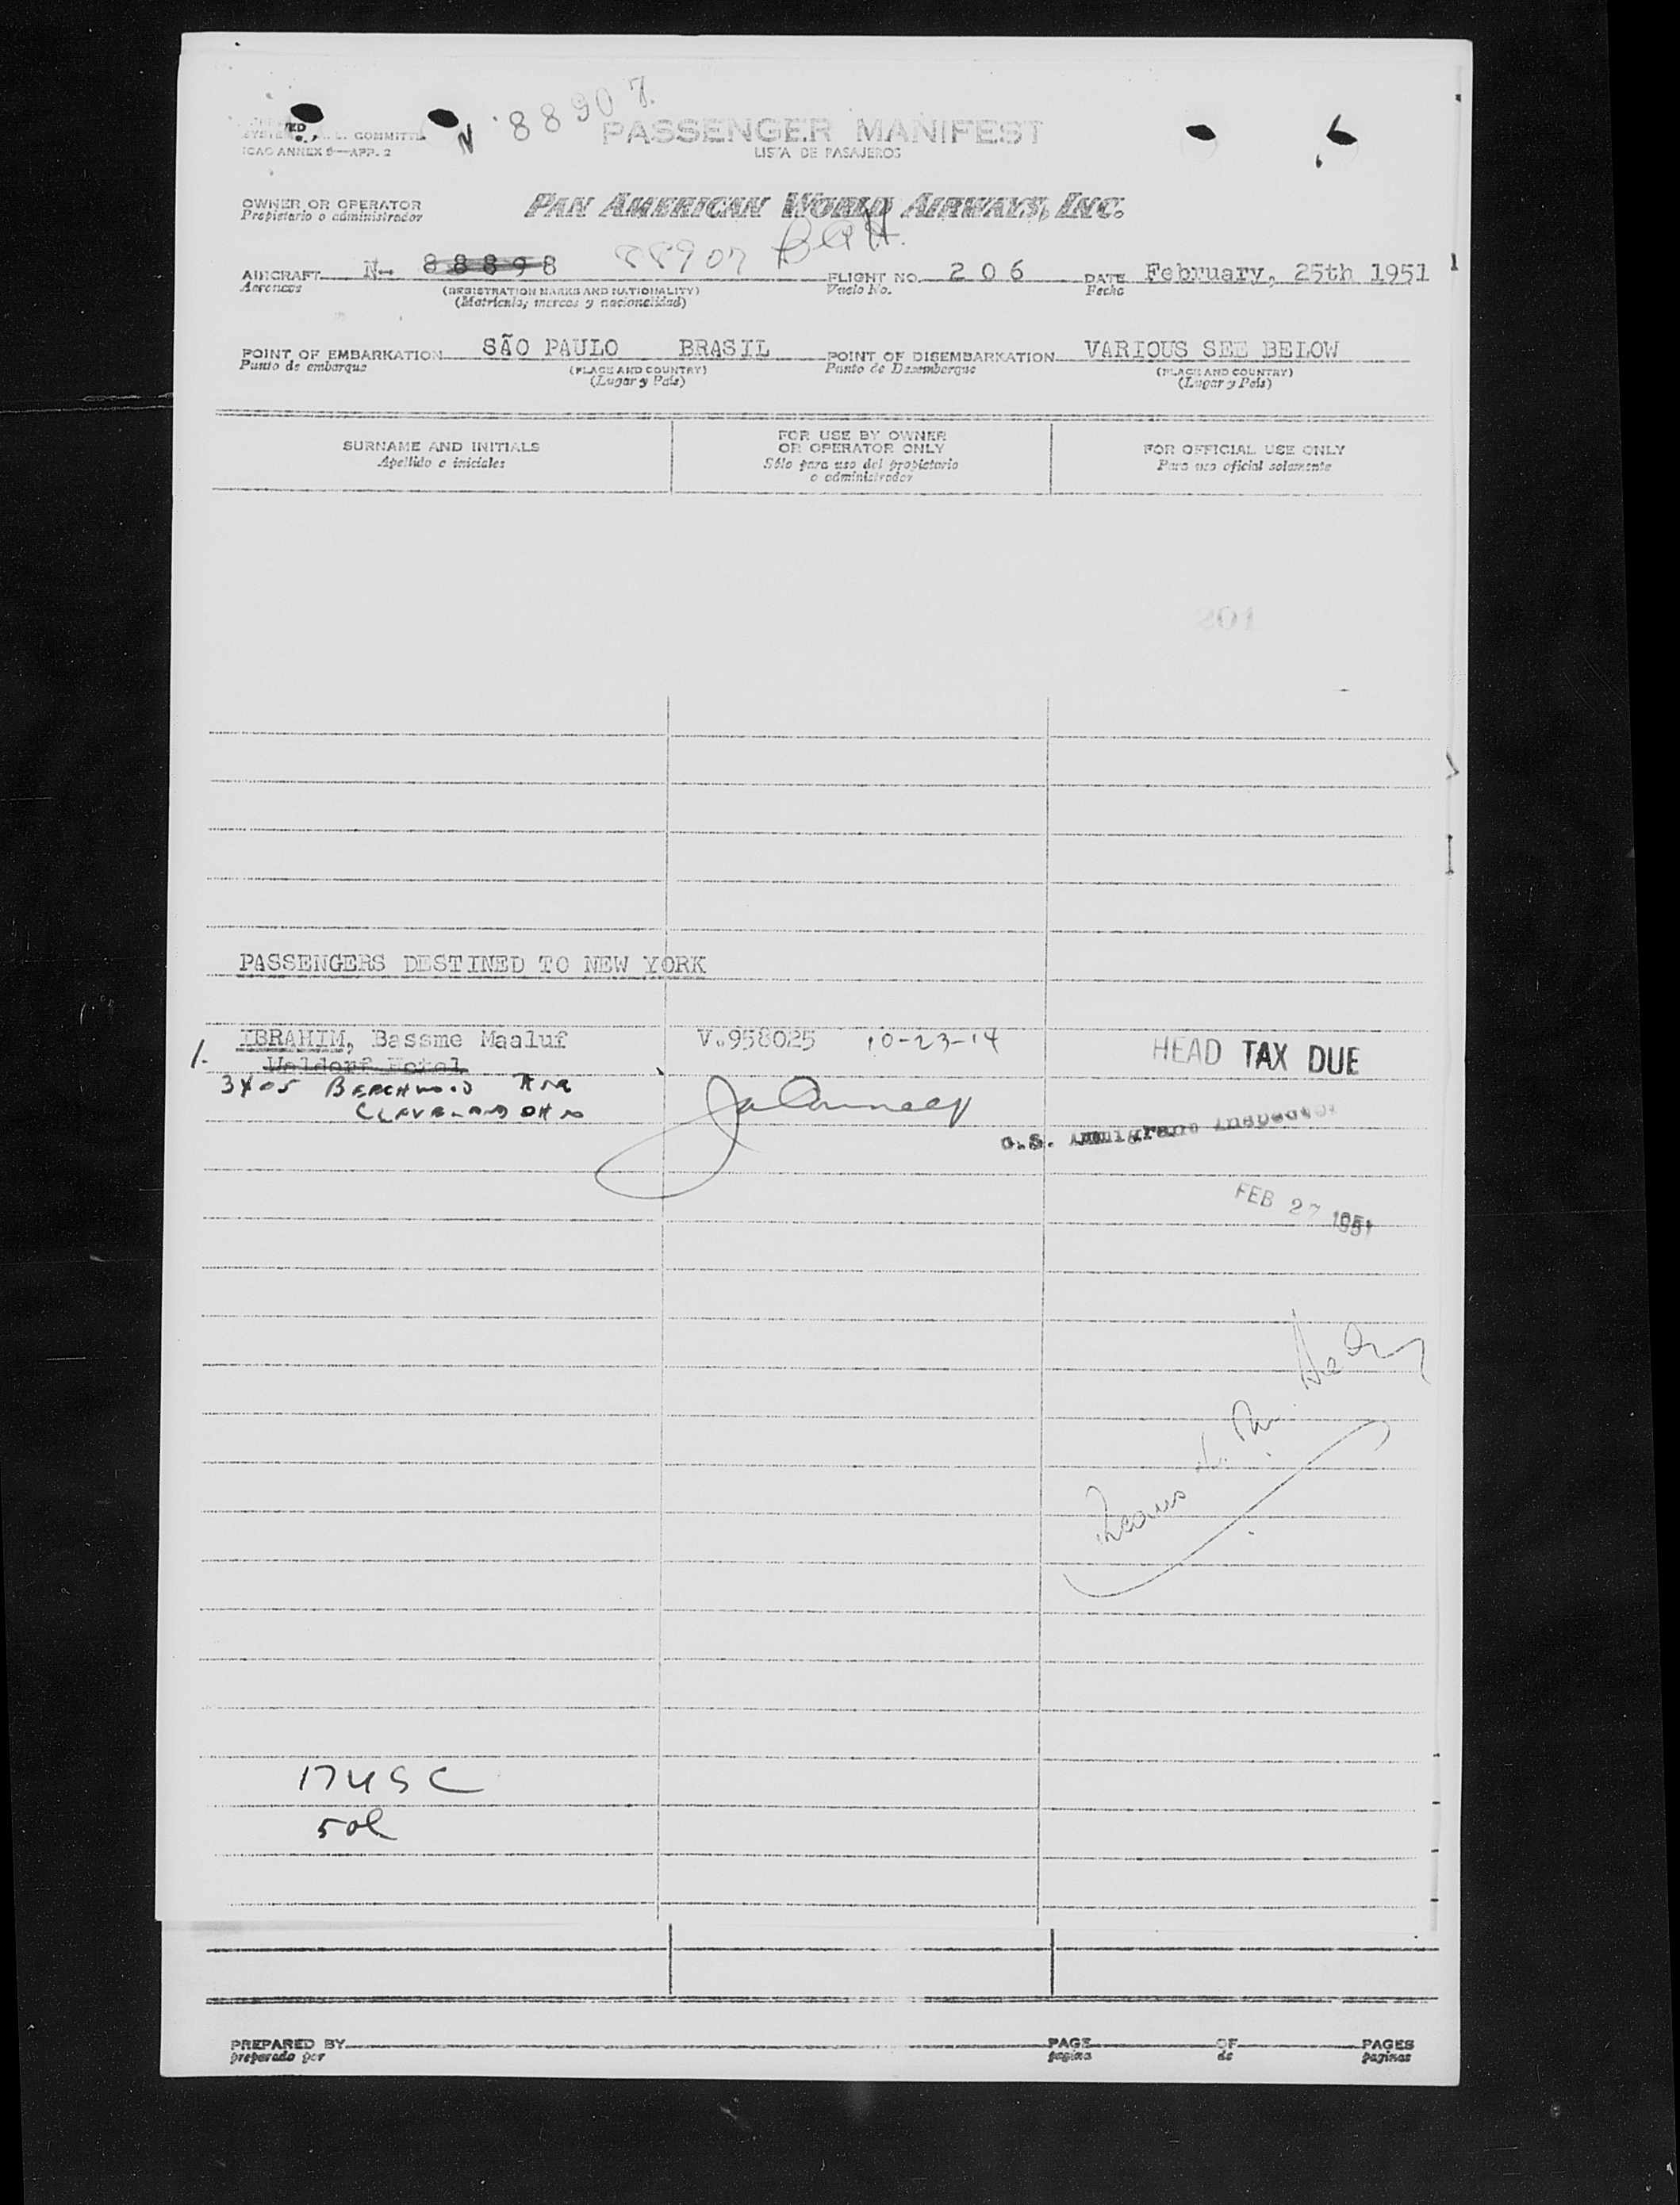 N 88907.
PASSENGER MANIFEST
LISTA DE PASAJEROS
COMMITTE
ICAO ANNEX 9—APP. 2
OWNER OR OPERATOR
Propietario o administrador
PAN AMERICAN WORLD AIRWAYS, INC.
AIRCRAFT N- 88898 88907 FLIGHT NO. 206 DATE February, 25th 1951
Aeronave (REGISTRATION MARKS AND NATIONALITY) Vuelo No. Fecha
(Matricula, marcas y nacionalidad)
POINT OF EMBARKATION SÃO PAULO BRASIL POINT OF DISEMBARKATION VARIOUS SEE BELOW
Punto de embarque (PLACE AND COUNTRY) Punto de Desembarque (PLACE AND COUNTRY)
(Lugar y País) (Lugar y País)
SURNAME AND INITIALS
Apellido e iniciales
FOR USE BY OWNER
OR OPERATOR ONLY
Sólo para uso del propietario
o administrador
FOR OFFICIAL USE ONLY
Para uso oficial solamente
PASSENGERS DESTINED TO NEW YORK
1. IBRAHIM, Bassme Maaluf V.958025 10-23-14 HEAD TAX DUE
Waldorf Hotel
3405 BEACHWOOD AVE
CLEVELAND OHIO
U.S. Immigrant Inspector
FEB 27 1951
17USC
50l
PREPARED BY PAGE OF PAGES
preparado por pagina de paginas